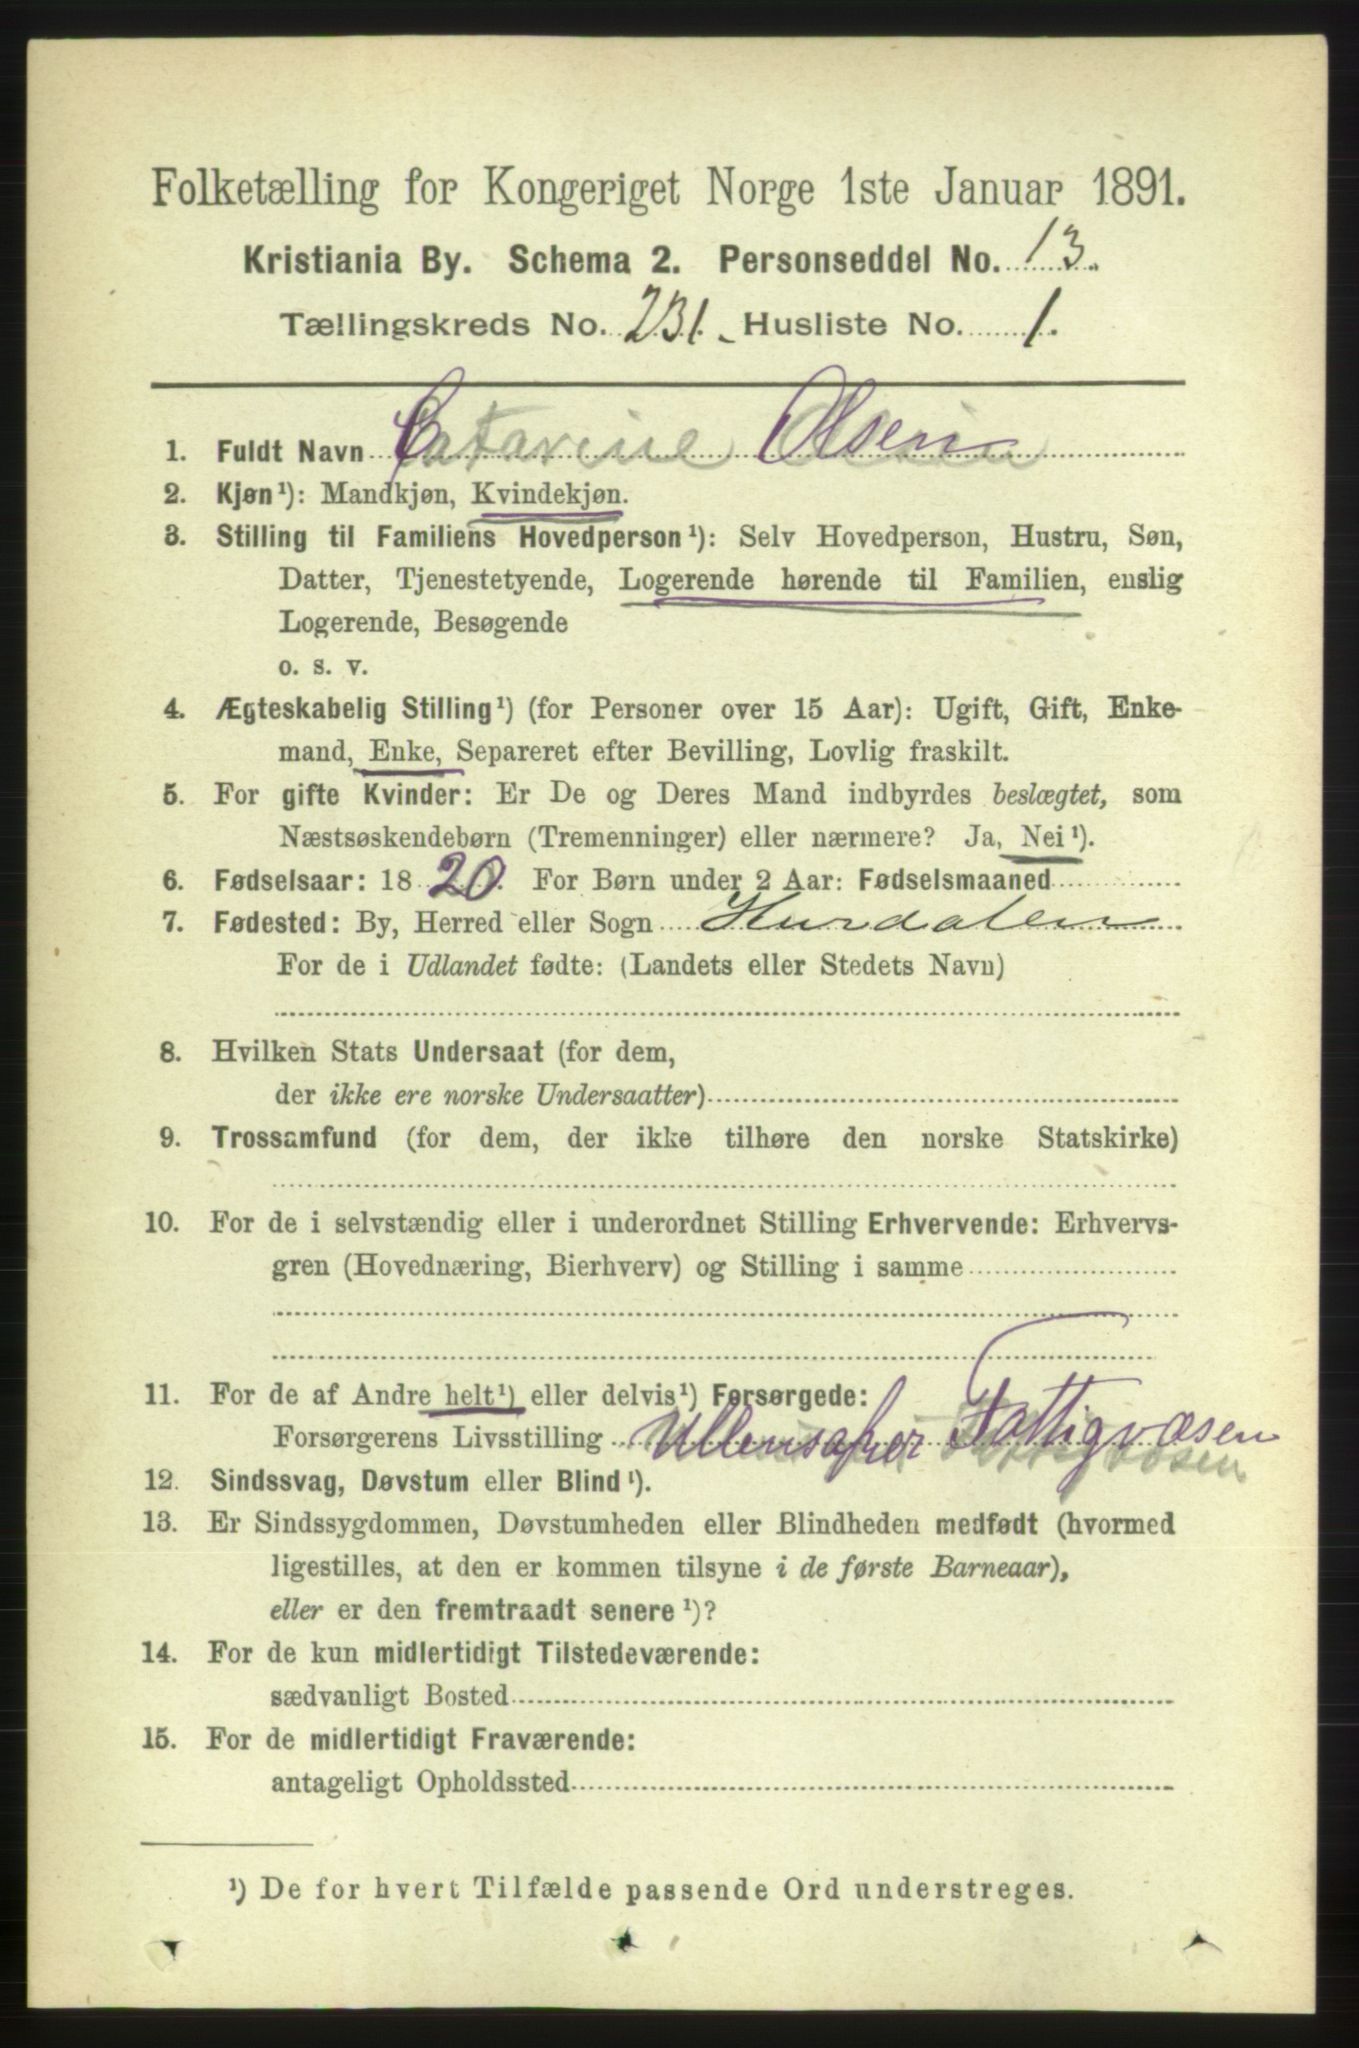 Folketælling for Kongeriget Norge 1ste Januar 1891.
Kristiania By. Schema 2. Personseddel No. 13.
Tællingskreds No. 231. Husliste No. 1.
1. Fuldt Navn Catarine Olsen
2. Kjøn¹): Mandkjøn, Kvindekjøn.
3. Stilling til Familiens Hovedperson¹): Selv Hovedperson, Hustru, Søn,
Datter, Tjenestetyende, Logerende hørende til Familien, enslig
Logerende, Besøgende
o. s. v.
4. Ægteskabelig Stilling¹) (for Personer over 15 Aar): Ugift, Gift, Enke-
mand, Enke, Separeret efter Bevilling, Lovlig fraskilt.
5. For gifte Kvinder: Er De og Deres Mand indbyrdes beslægtet, som
Næstsøskendebørn (Tremenninger) eller nærmere? Ja, Nei¹).
6. Fødselsaar: 1820. For Børn under 2 Aar: Fødselsmaaned
7. Fødested: By, Herred eller Sogn Hurdalen
For de i Udlandet fødte: (Landets eller Stedets Navn)
8. Hvilken Stats Undersaat (for dem,
der ikke ere norske Undersaatter)
9. Trossamfund (for dem, der ikke tilhøre den norske Statskirke)
10. For de i selvstændig eller i underordnet Stilling Erhvervende: Erhvervs-
gren (Hovednæring, Bierhverv) og Stilling i samme
11. For de af Andre helt¹) eller delvis¹) Forsørgede:
Forsørgerens Livsstilling Ullensaker Fattigvæsen
12. Sindssvag, Døvstum eller Blind¹).
13. Er Sindssygdommen, Døvstumheden eller Blindheden medfødt (hvormed
ligestilles, at den er kommen tilsyne i de første Barneaar),
eller er den fremtraadt senere¹)?
14. For de kun midlertidigt Tilstedeværende:
sædvanligt Bosted
15. For de midlertidigt Fraværende:
antageligt Opholdssted
¹) De for hvert Tilfælde passende Ord understreges.